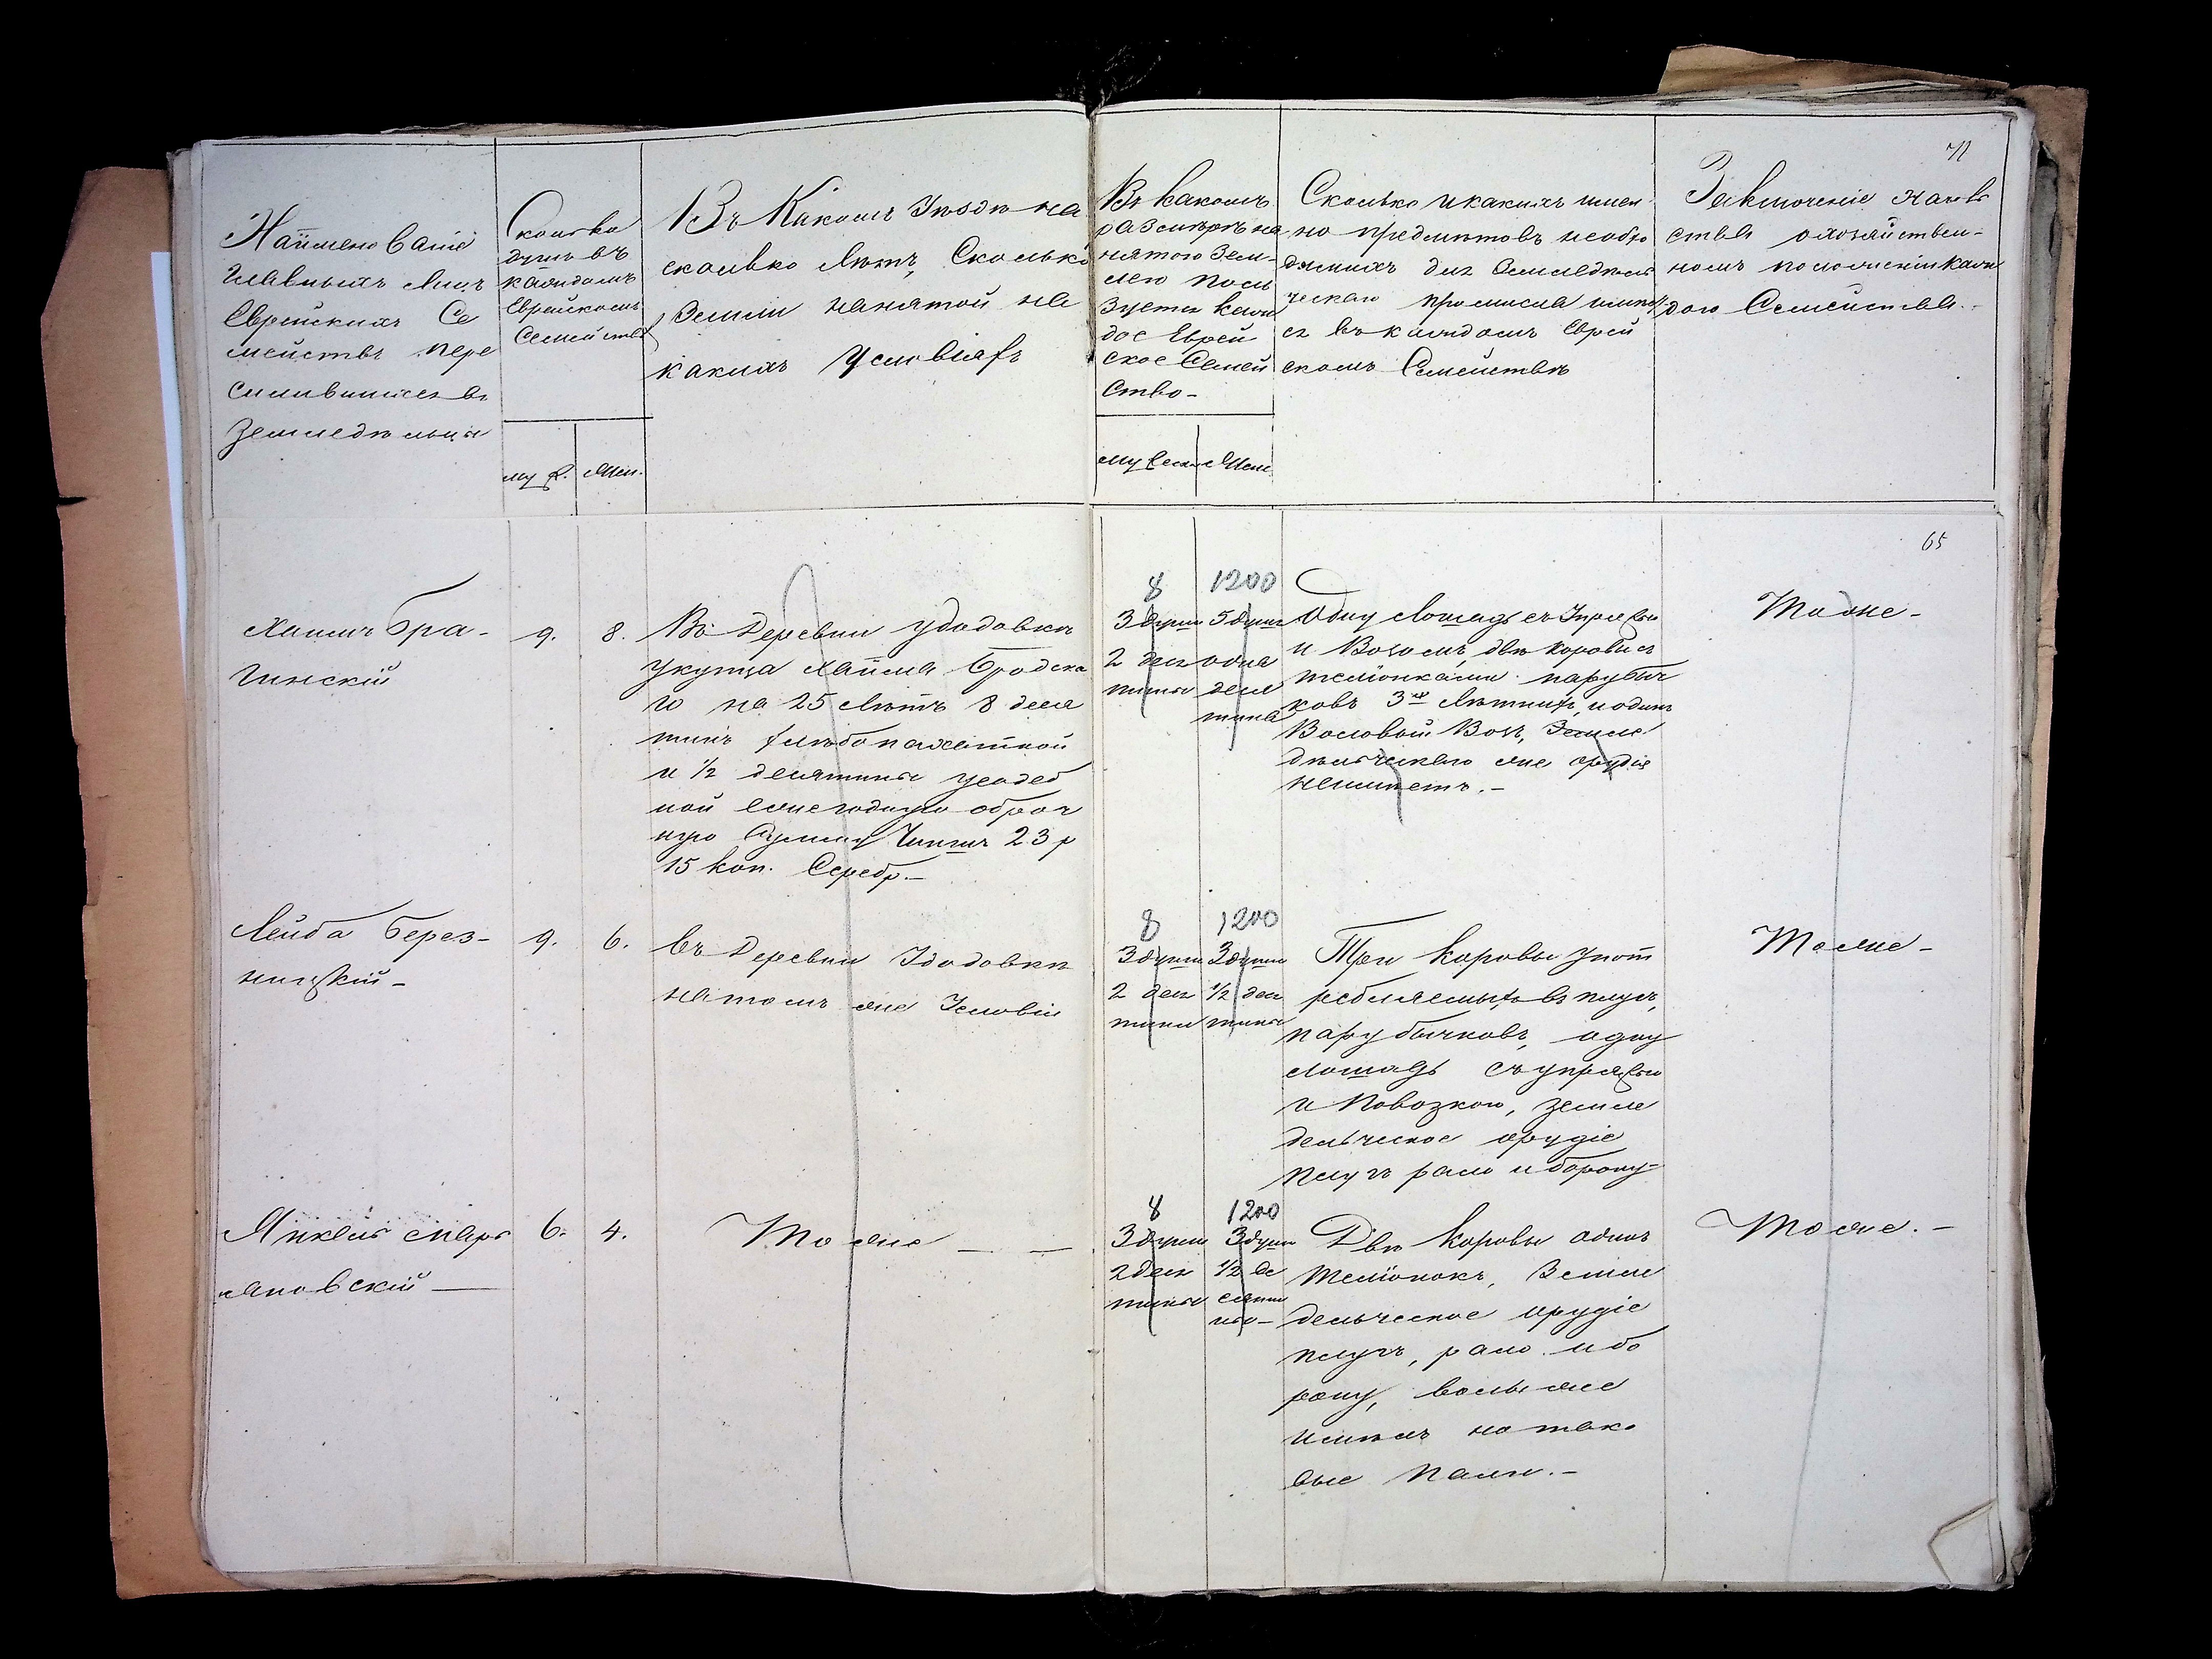 71
Наименованіе
главныхъ лицъ
Еврейскихъ Се
мействъ пере
силившихся въ
земледѣльцы
Сколько
душъ въ
каждомъ
Еврейскомъ
Семействѣ
муж. жен.
Въ Какомъ Уѣздѣ на
сколько лѣтъ, Сколько
Земли нанятой на
какихъ Условіяхъ
Въ какомъ
размѣрѣ на
нятою Зем-
лею поль
зуется каж
дое Еврей
ское Семей
ство-
мужеск Жен
Сколько и какихъ имен
но предметовъ необхо
димыхъ для Земледѣль
ческаго промысла имеет
ся въ каждомъ Еврей
скомъ Семействѣ
Заключеніе Началь
ства о хозяйствен-
номъ положеніи каж
даго Семейства.-
65
Хаимъ Бра-
гинскій
9. 8.
Въ Деревни Удодовкѣ
у купца Хаима Бродска
го на 25 лѣтъ 8 деся
тинъ хлѣбопахатной
и 1/2 десятины усадеб
ной ежегодную оброч
ную Сумму Чиншъ 23 р
15 коп. Серебр.-
8 1200
3 души 5 душъ
2 деся одна
тины деся
тина
Одну лошадь съ Упряжью
и Возомъ, двѣ коровы съ
телёнками пару быч
ковъ 3хъ Лѣтнихъ, и одинъ
Воловый Возъ, Земле
дѣльческаго же орудія
неимѣетъ.-
Тоже-
Лейба Берез-
ницкій-
9. 6.
въ Деревни Удодовкѣ
натомъ же Условіи
8 1200
3 души 3 души
2 деся 1/2 деся
тины тины
Три коровы упот
ребляемыхъ въ плугъ,
пару бычковъ, одну
лошадь съ упряжью
и Повозкою, земле
дельческое орудіе
плугъ рало и борону-
Тоже-
Янкель Марь
яновскій —
6. 4.
Тоже — —
8 1200
3 души 3 души
2 деся 1/2 де
тины сяти
ны-
Двѣ Коровы одинъ
телёнокъ, Земле
дельческое орудіе
плугъ, рало и бо
рону, волы же
имѣлъ но тако
вые пали.-
Тоже.-